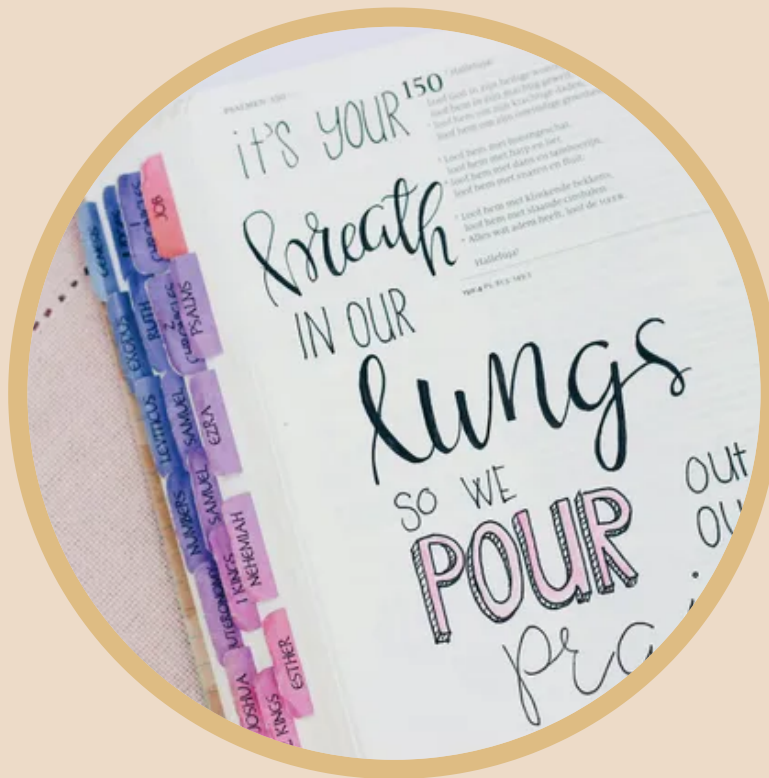 PSALMEN 150
150
Halleluja!
Loof God in zijn heilige woning
loof hem in zijn machtig gewelf
loof hem om zijn krachtige daden,
loof hem om zijn oneindige grootheid.
Loof hem met hoorngeschal,
loof hem met harp en lier,
loof hem met dans en tamboerijn,
loof hem met snaren en fluit.
Loof hem met klinkende bekkens,
loof hem met slaande cimbalen.
Alles wat adem heeft, loof de HEER.
Halleluja!
it's YOUR
breath
IN OUR
lungs
SO WE
POUR
OUT
OU
pra
JOB
RUTH
PSALMS
EXODUS
LEVITICUS
SAMUEL
EZRA
NUMBERS
SAMUEL
1 KINGS
NEHEMIAH
JOSHUA
KINGS
ESTHER